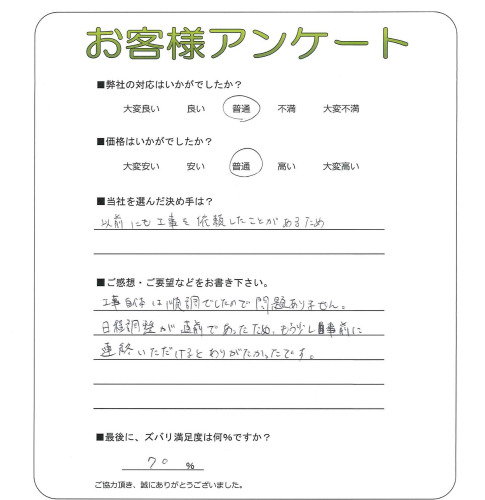 お客様アンケート
■弊社の対応はいかがでしたか？
大変良い 良い 普通 不満 大変不満
■価格はいかがでしたか？
大変安い 安い 普通 高い 大変高い
■当社を選んだ決め手は？
以前にも工事を依頼したことがあるため
■ご感想・ご要望などをお書き下さい。
工事自体は順調でしたので問題ありません。
日程調整が直前であったため、もう少し事前に
連絡いただけるとありがたかったです。
■最後に、ズバリ満足度は何%ですか？
70 %
ご協力頂き、誠にありがとうございました。